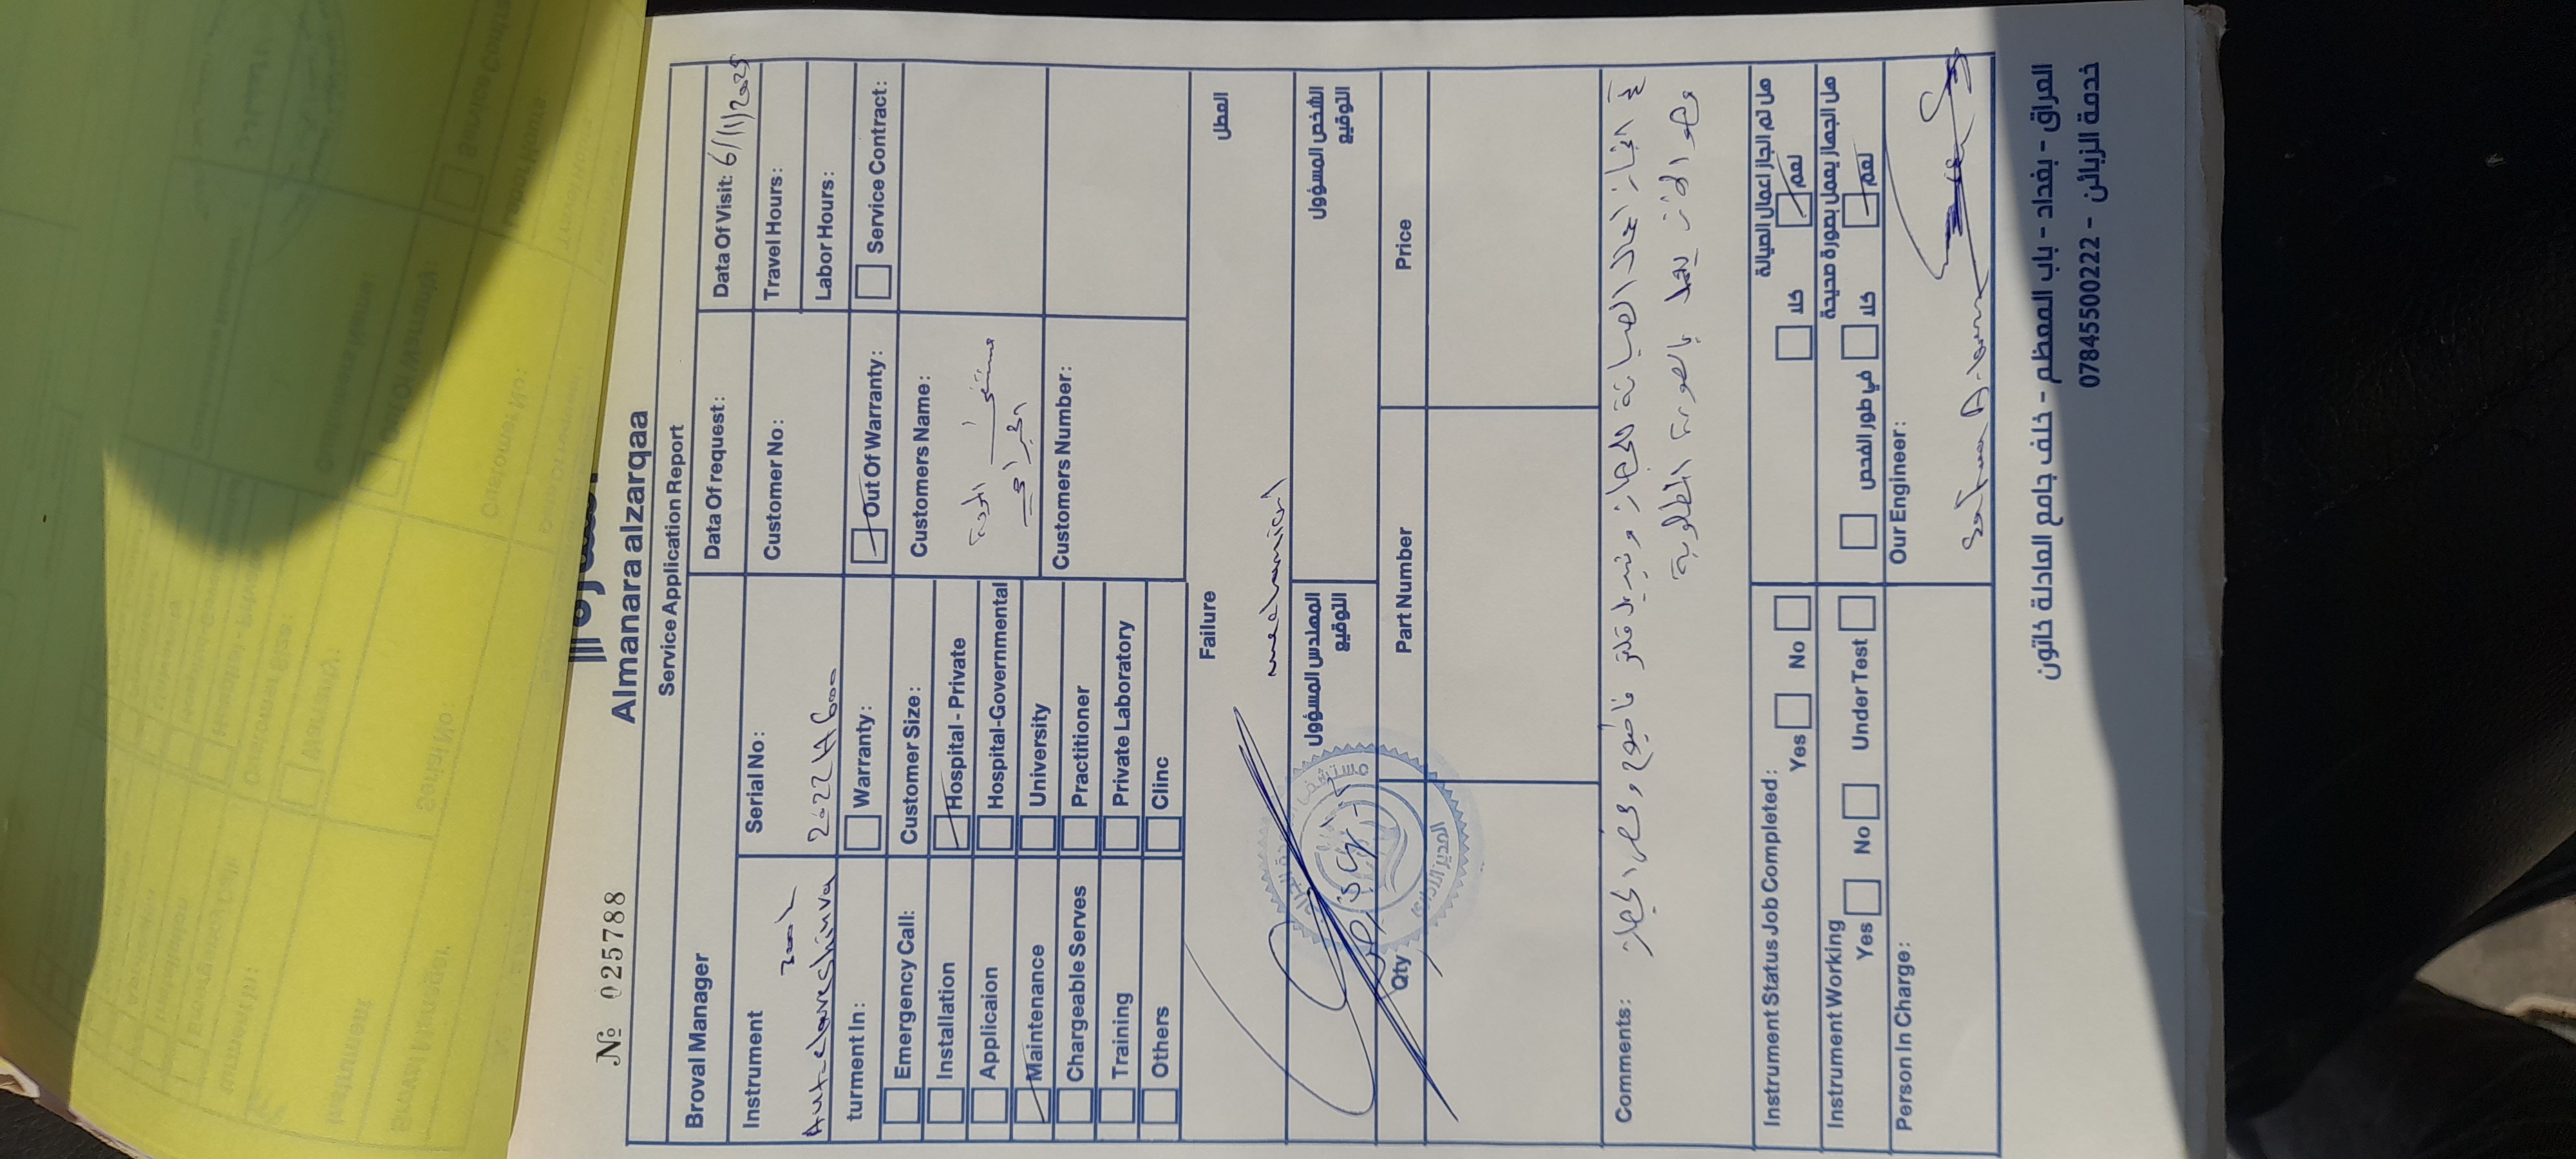 № 025788
Almanara alzarqaa
Service Application Report
Broval Manager
Data Of request:
Data Of Visit: 6/11/2025
Instrument
Serial No:
Customer No:
Travel Hours:
Labor Hours:
Autoclave Shinva
2022H6000
turment In:
Warranty:
Out Of Warranty:
Service Contract:
Emergency Call:
Customer Size:
Customers Name:
Installation
Hospital - Private
مستشفى
Applicaion
Hospital-Governmental
Maintenance
University
Customers Number:
Chargeable Serves
Practitioner
Training
Private Laboratory
Others
Clinc
Failure
العطل
mechanical
المهندس المسؤول
الشخص المسؤول
التوقيع
التوقيع
Qty
Part Number
Price
Comments:
تم انجاز اعمال الصيانة للجهاز وتبديل فلتر وفحص الجهاز
وهو الان يعمل بالصورة المطلوبة
Instrument Status Job Completed:
Yes
No
هل تم انجاز اعمال الصيانة
كلا
نعم
Instrument Working
Yes
No
Under Test
هل الجهاز يعمل بصورة صحيحة
في طور الفحص
كلا
نعم
Person In Charge:
Our Engineer:
العراق - بغداد - باب المعظم - خلف جامع العادلة خاتون
خدمة الزبائن - 07845500222